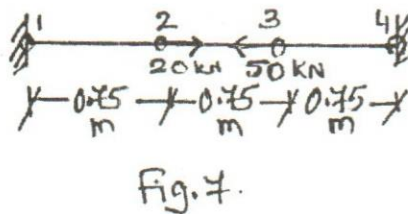 1 2 3 4
20KN 50KN
0.75 0.75 0.75
m m m
Fig. 7.